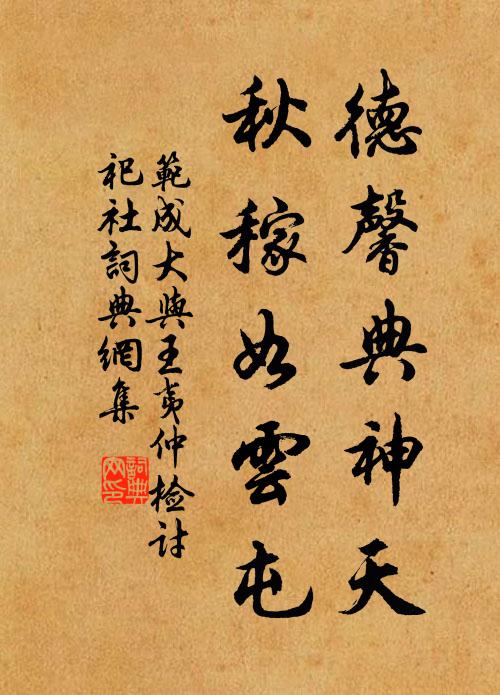 德馨典神天
秋稼如雲屯
範成大與王夷仲檢討
祀社詞典網集
詞典網印